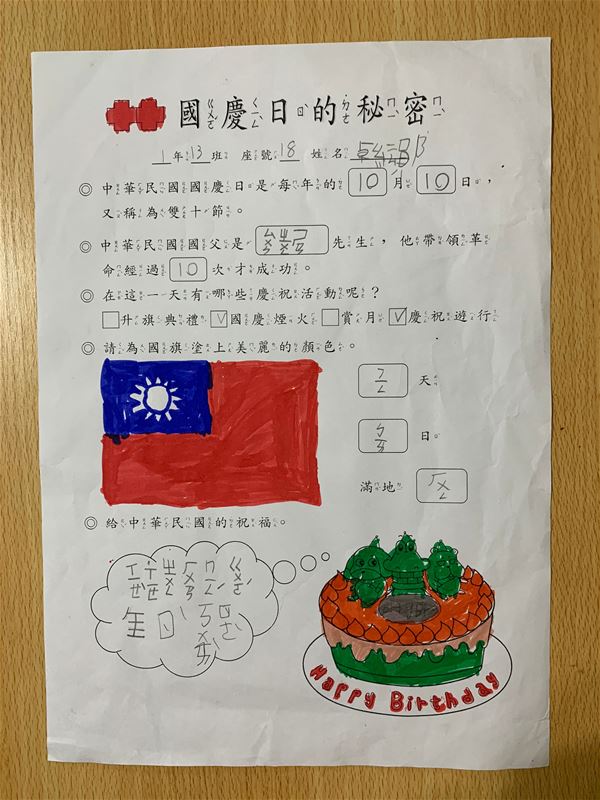 國慶日的秘密
1年13班 座號18 姓名
◎ 中華民國國慶日是每年的 10 月 10 日，
又稱為雙十節。
◎ 中華民國國父是 先生，他帶領革
命經過 10 次才成功。
◎ 在這一天有哪些慶祝活動呢？
□升旗典禮 ☑國慶煙火 □賞月 ☑慶祝遊行
◎ 請為國旗塗上美麗的顏色。
ㄑㄧㄥ 天
ㄅㄞˊ 日
滿地 ㄏㄨㄥˊ
◎ 給中華民國的祝福。
Happy Birthday